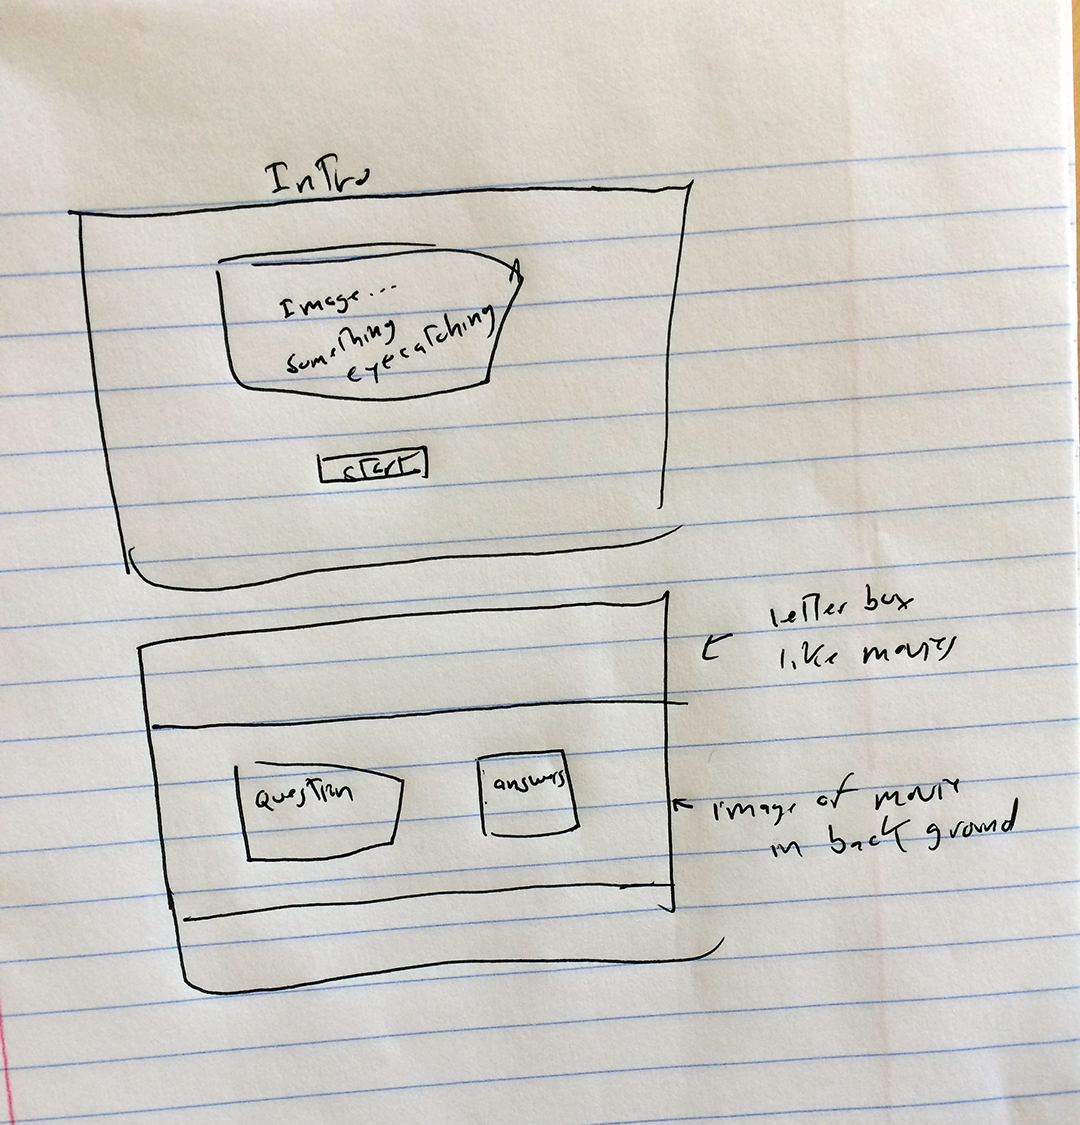 Intro
Image...
something
eyecatching
start
letter box
like movies
question
answers
image of movie
in back ground